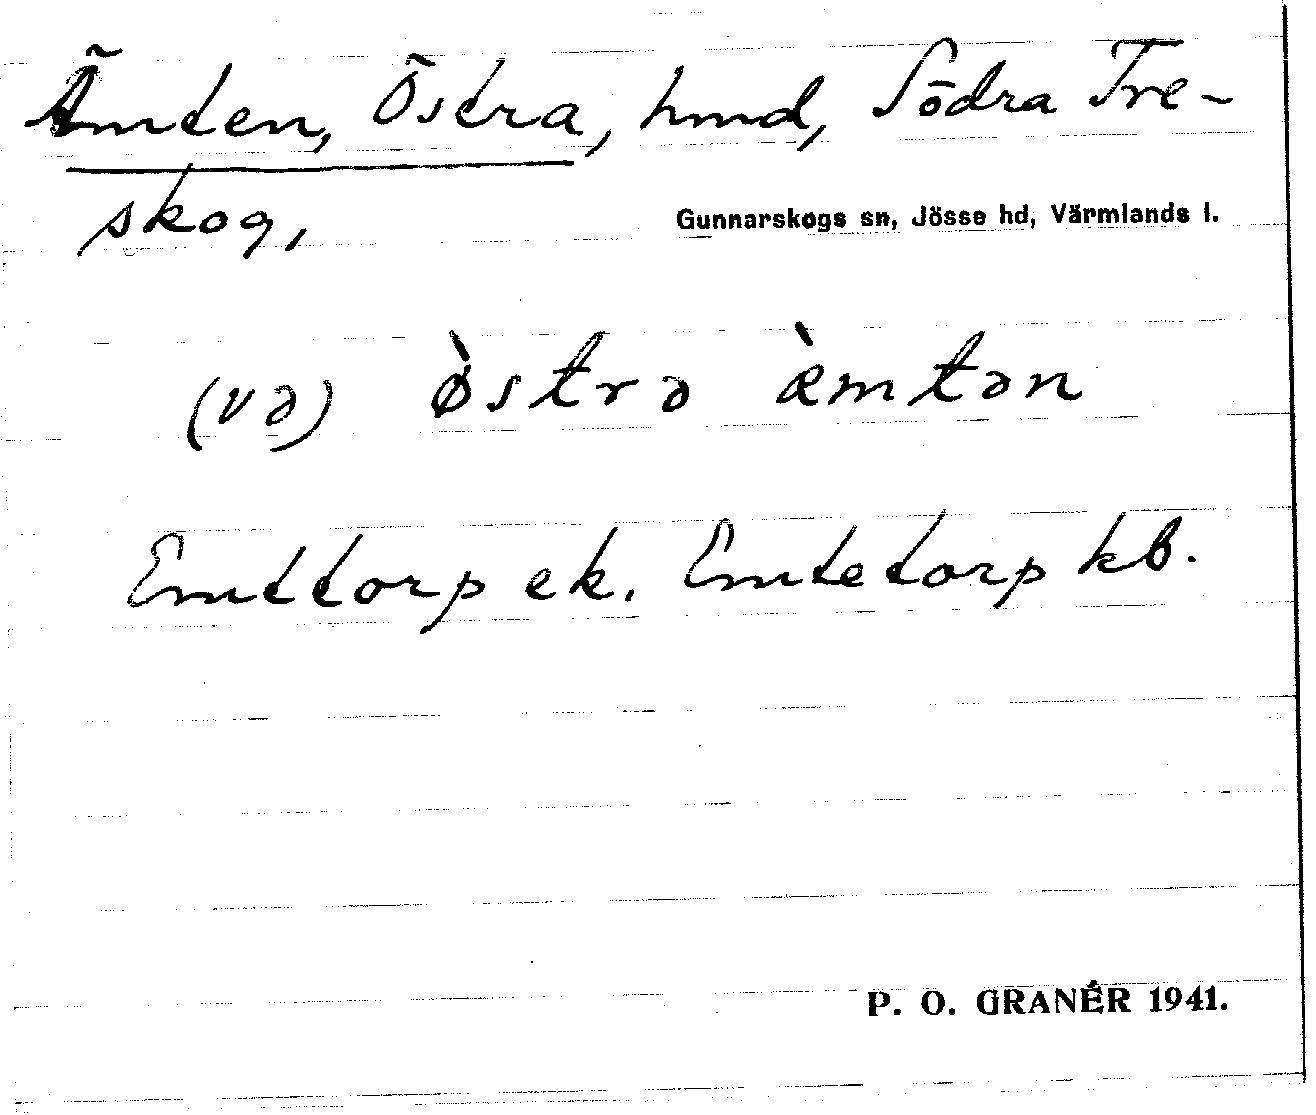 Ämten, Östra, hmd, Södra Tre-
skog,
Gunnarskogs sn, Jösse hd, Värmlands l.
(və) ø̀strə æ̀mtən
Emttorp ek. Emtetorp kb.
P. O. GRANÉR 1941.